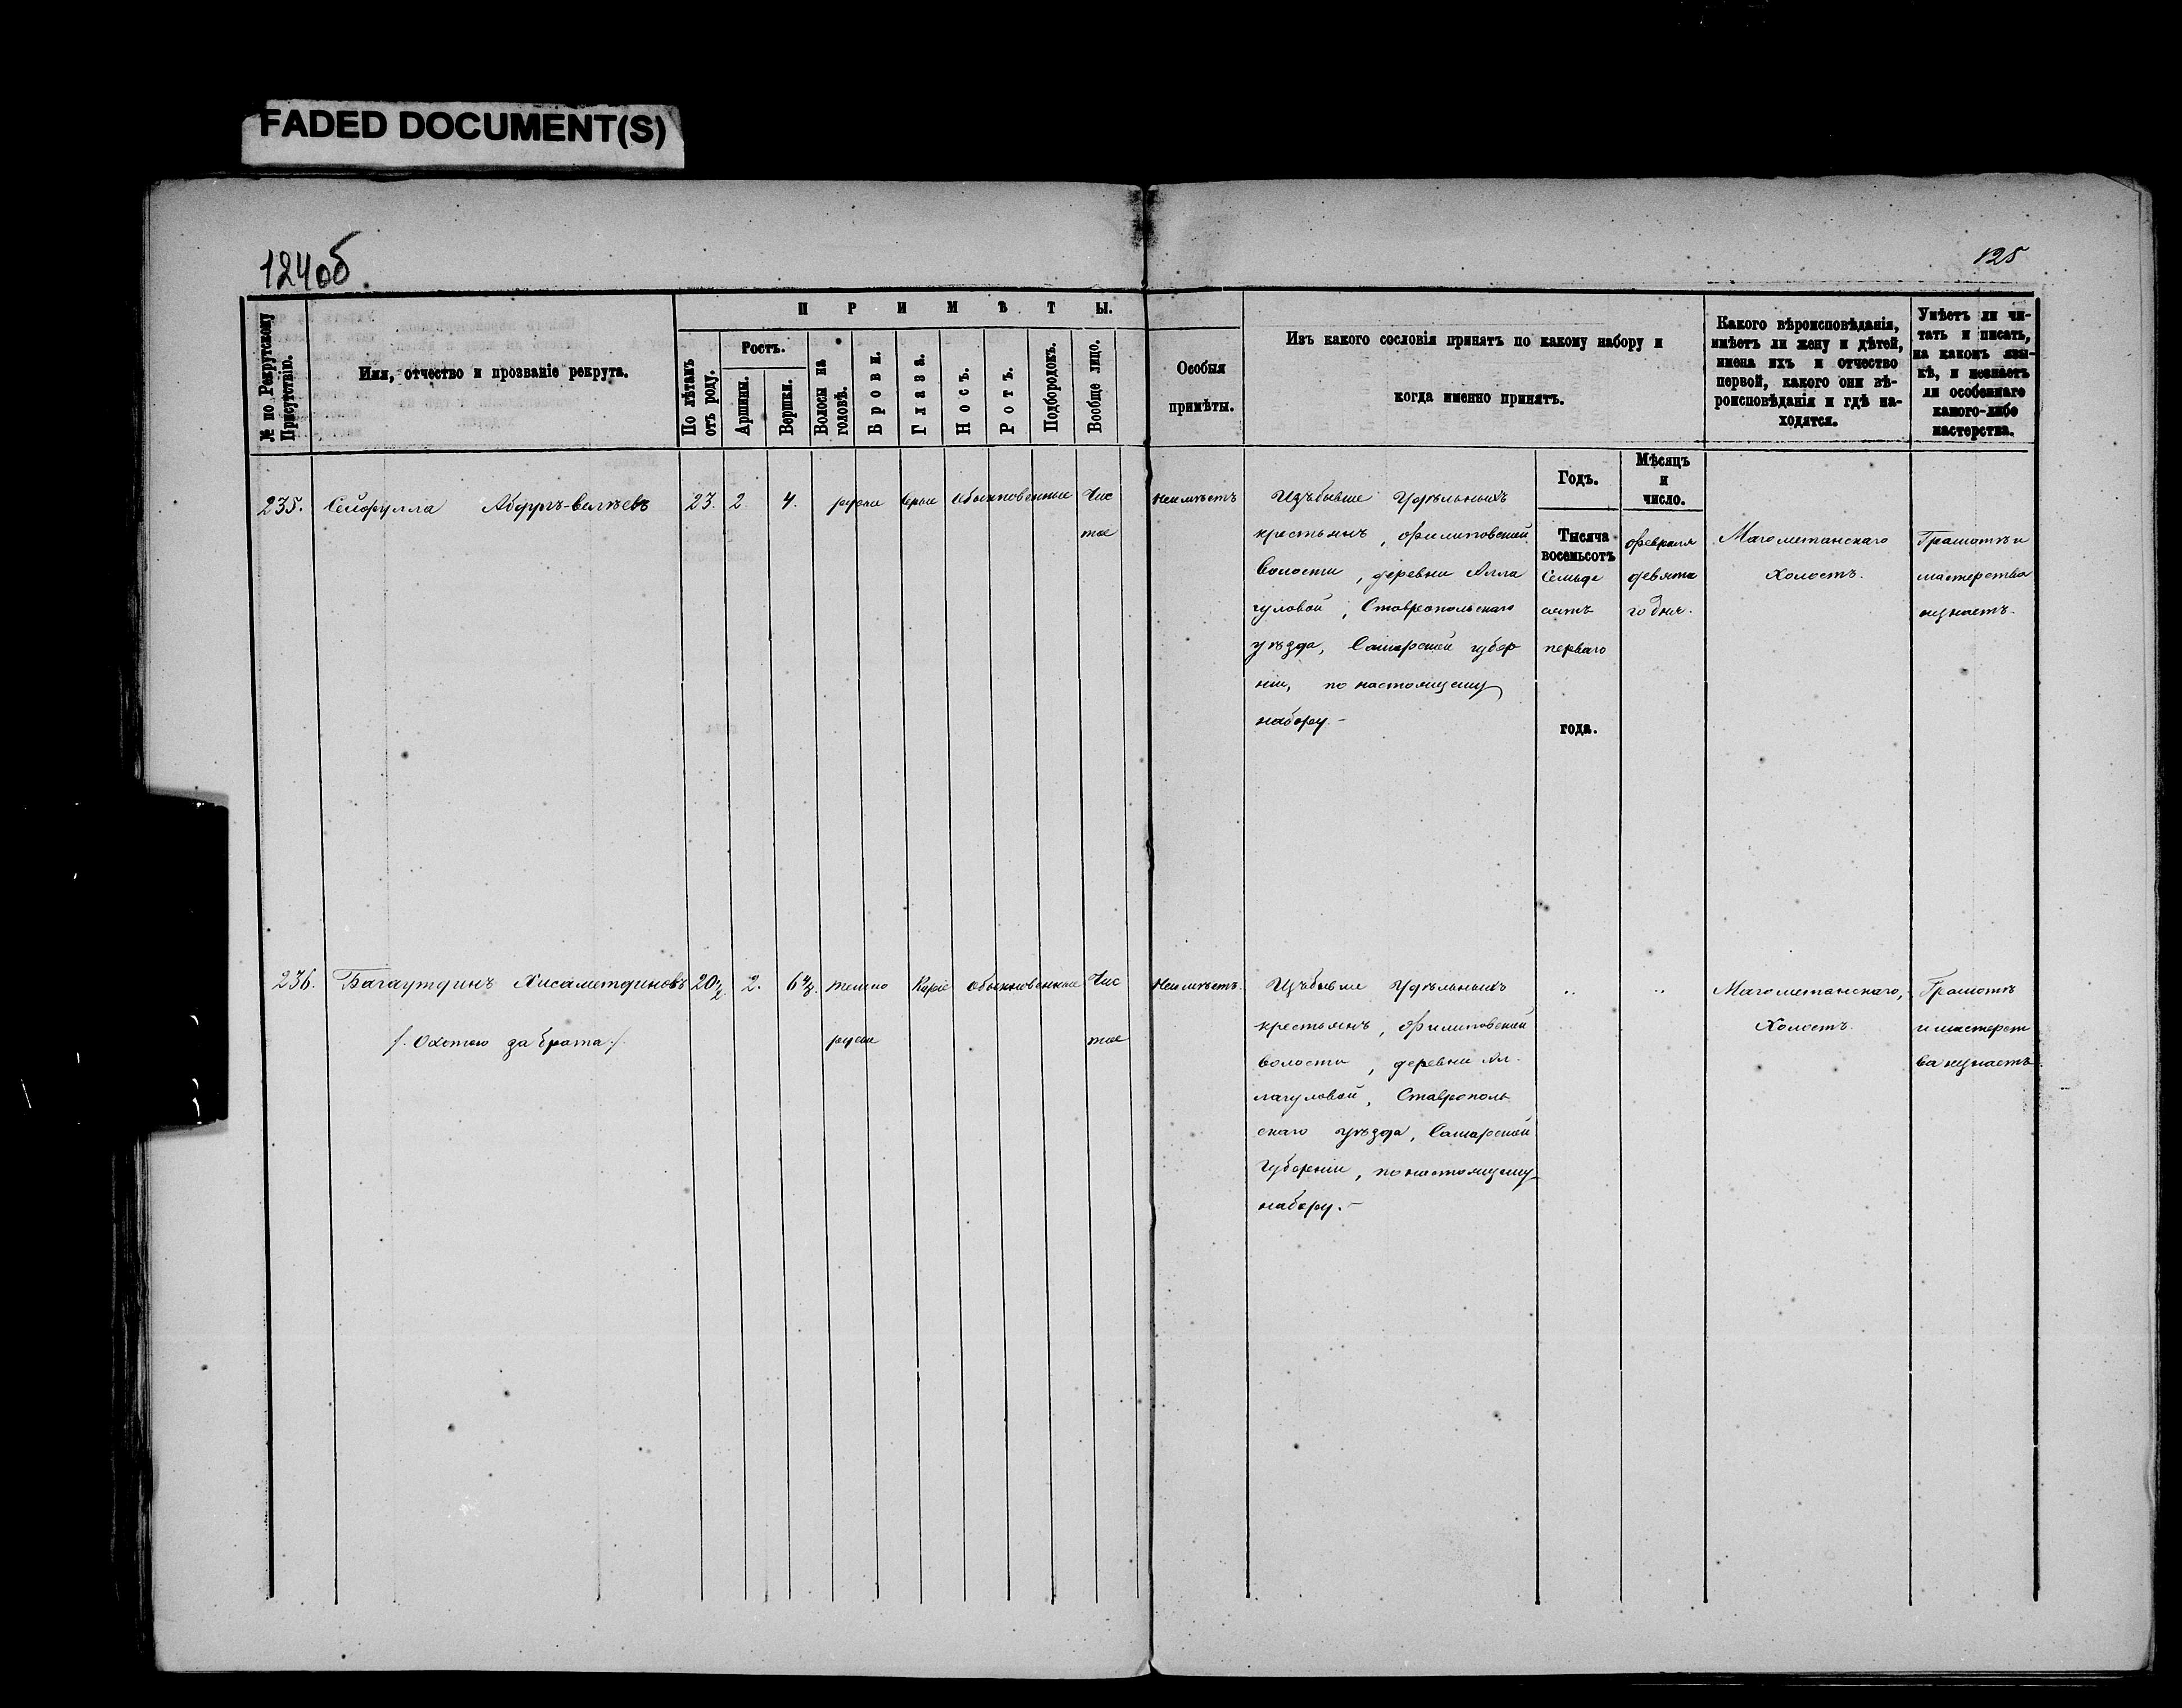 FADED DOCUMENT(S)
124об.
125
№ по Рекрутскому Присутствію.
Имя, отчество и прозваніе рекрута.
ПРИМѢТЫ.
По лѣтамъ отъ роду.
Ростъ.
Аршины.
Вершки.
Волосы на головѣ.
Брови.
Глаза.
Носъ.
Ротъ.
Подбородокъ.
Вообще лицо.
Особыя
примѣты.
Изъ какого сословія принятъ по какому набору и
когда именно принятъ.
Какого вѣроисповѣданія,
имѣетъ ли жену и дѣтей,
имена ихъ и отчество
первой, какого они вѣ-
роисповѣданія и гдѣ на-
ходятся.
Умѣетъ ли чи-
тать и писать,
на какомъ язы-
кѣ, и незнаетъ
ли особеннаго
какого-либо
мастерства.
Годъ.
Мѣсяцъ
и
число.
235. Сейфулла Абдулъ-Валѣевъ 23. 2. 4. русые обыкновенные Чис
тое
Неимѣетъ
Изъ бывше Удѣльныхъ
крестьянъ, Филиповской
волости, деревни Алла
гуловой, Ставропольскаго
уѣзда, Самарской губер
ніи, по настоящему
набору.-
Тысяча
восемьсотъ
Семьде
сятъ
перваго
года.
февраля
девята
го дня.
Магометанскаго
Холостъ.
Грамотѣ и
мастерства
незнаетъ.
236. Багаутдинъ Хисаметдиновъ 20½ 2. 6 4/8. темно Каріе обыкновенные Чис
/. Охотою за брата ./ русые тое
Неимѣетъ.
Изъ бывше Удѣльныхъ
крестьянъ, Филиповской
волости, деревни Ал-
лагуловой, Ставрополь
скаго уѣзда, Самарской
Губерніи, по настоящему
набору.-
" "
Магометанскаго,
Холостъ.
Грамотѣ
и мастерст
ва незнаетъ